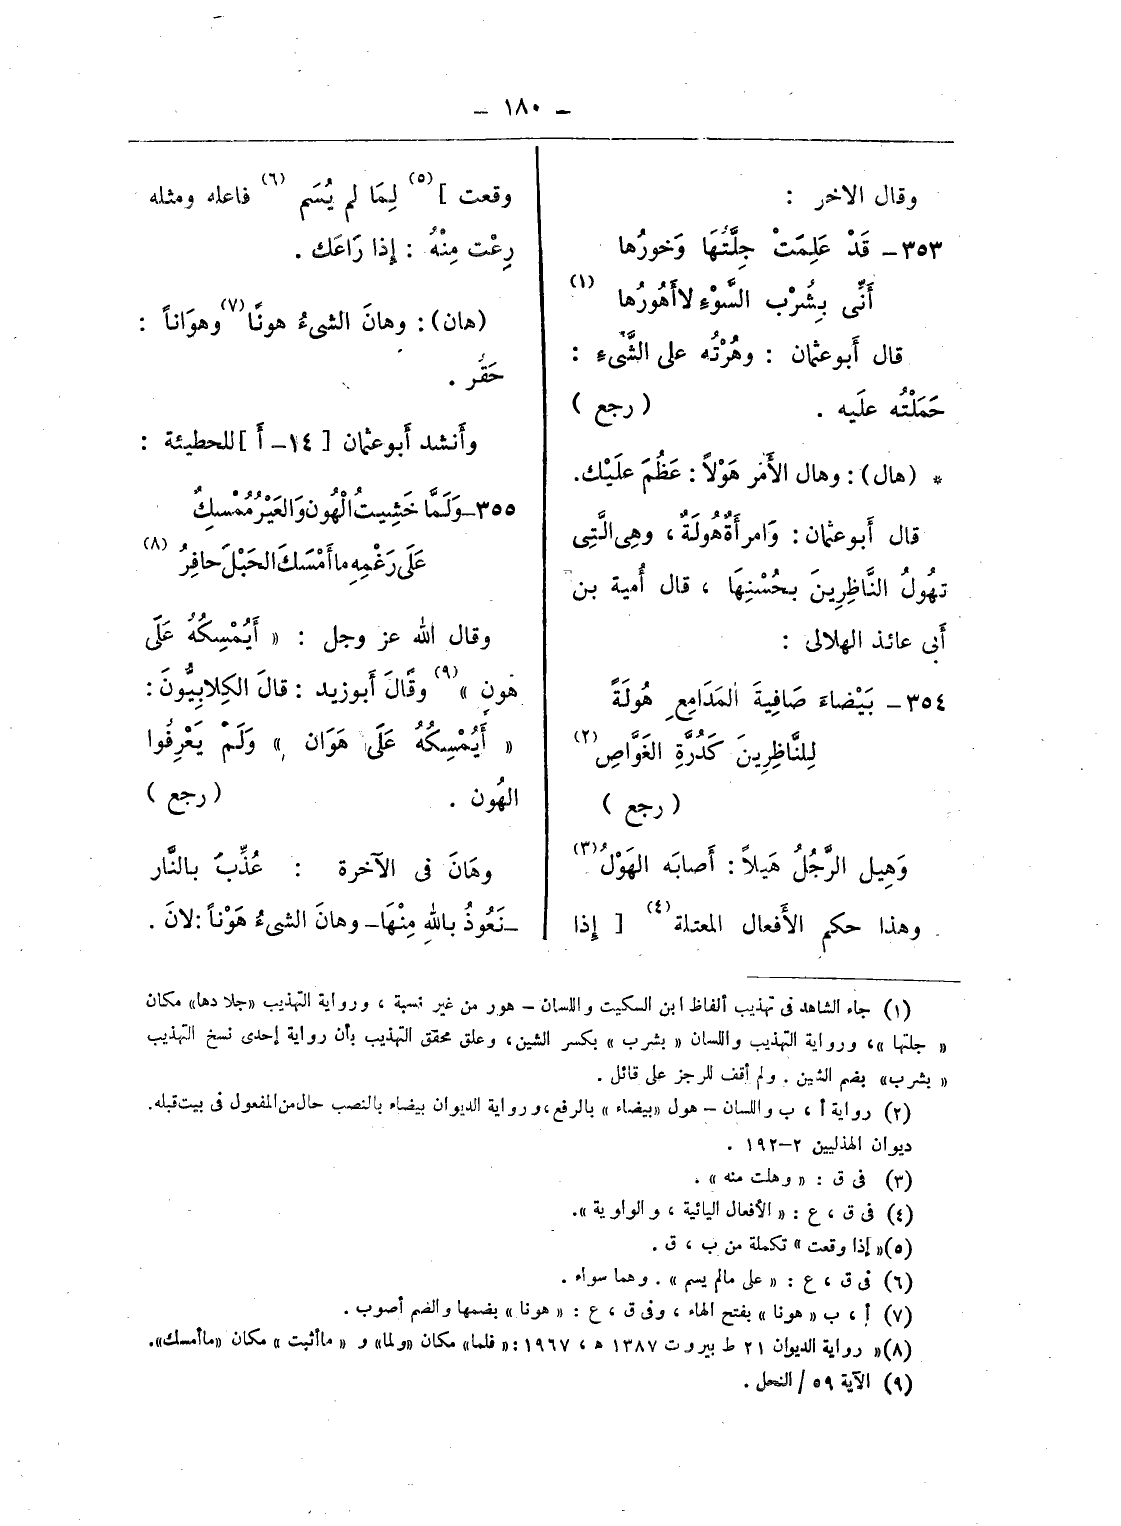 – ١٨٠ –
وقال الاخر :
٣٥٣– قَدْ عَلِمَتْ جِلَّتُهَا وَخورُها
أَنِّى بِشُرْب السَّوْءِ لاأَهُورُها (١)
قال أَبوعثمان : وهُرْتُه على الشَّىءِ :
حَمَلْتُه علَيه . ( رجع )
* (هال) : وهال الأَمْر هَوْلاً : عَظُمَ علَيْك.
قال أَبوعثمان : وَامرأَةٌ هُولَةٌ ، وهِى الَّتِى
تهُولُ النَّاظِرِينَ بحُسْنِهَا ، قال أُمية بن
أَبى عائذ الهلالى :
٣٥٤– بَيْضاءَ صَافِيةَ المَدَامِع هُولَةً
لِلنَّاظِرِينَ كَدُرَّةِ الغَوَّاصِ (٢)
( رجع )
وَهِيل الرَّجُلُ هَيلاً : أَصابَه الهَوْلُ (٣)
وهذا حكم الأَفعال المعتلة (٤) [ إِذا
وقعت ] (٥) لِمَا لم يُسَم (٦) فاعله ومثله
رِعْت مِنْهُ : إِذا رَاعَك .
(هان) : وهانَ الشىءُ هونًا (٧) وهوَاناً :
حَقُر .
وأَنشد أَبوعثمان [ ١٤– أَ ] للحطيئة :
٣٥٥–وَلَمَّا خَشِيتُ الْهُون وَالعَيْرُ مُمْسِكٌ
عَلَى رَغْمِهِ ما أَمْسَكَ الحَبْلَ حافِرُ (٨)
وقال الله عز وجل : « أَيُمْسِكُهُ عَلَى
هُونٍ » (٩) وقَالَ أَبوزيد : قالَ الكِلابِيُّونَ :
« أَيُمْسِكُهُ عَلَى هَوَان » وَلَمْ يَعْرِفُوا
الهُون . ( رجع )
وهَانَ فى الآخرة : عُذِّبَ بالنَّار
–نَعُوذُ بالله مِنْهَا– وهانَ الشىءُ هَوْناً : لانَ .
(١) جاء الشاهد فى تهذيب ألفاظ ابن السكيت واللسان – هور من غير نسبة ، ورواية التهذيب «جلادها» مكان
« جلتها »، ورواية التهذيب واللسان « بشرب » بكسر الشين، وعلق محقق التهذيب بأن رواية إحدى نسخ التهذيب
« بشرب» بضم الشين . ولم أقف للرجز على قائل .
(٢) رواية أ ، ب واللسان – هول «بيضاء » بالرفع، ورواية الديوان بيضاء بالنصب حال من المفعول فى بيت قبله.
ديوان الهذليين ٢–١٩٢ .
(٣) فى ق : « وهلت منه » .
(٤) فى ق ، ع : « الأفعال اليائية ، والواوية ».
(٥)« إذا وقعت » تكملة من ب ، ق .
(٦) فى ق ، ع : « على مالم يسم » . وهما سواء .
(٧) أ ، ب « هونا » بفتح الهاء ، وفى ق ، ع : « هونا » بضمها والضم أصوب .
(٨)« رواية الديوان ٢١ ط بيروت ١٣٨٧ ه ، ١٩٦٧ :« فلما» مكان «ولما» و « ماأثبت » مكان «ماأمسك».
(٩) الآية ٥٩ / النحل .